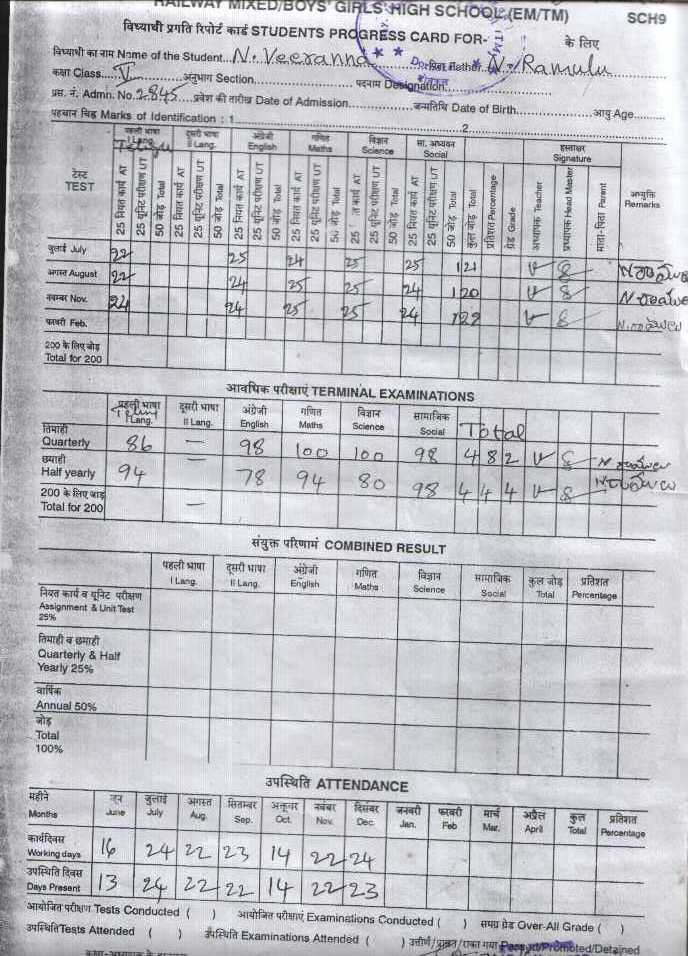 RAILWAY MIXED/BOYS' GIRLS' HIGH SCHOOL (EM/TM) SCH9
विध्यार्थी प्रगति रिपोर्ट कार्ड STUDENTS PROGRESS CARD FOR- के लिए
विध्यार्थी का नाम Name of the Student N. Veeranna N. Ramulu
कक्षा Class V अनुभाग Section पदनाम Designation
प्रस. नं. Admn. No. 2845 प्रवेश की तारीख Date of Admission जन्मतिथि Date of Birth आयु Age
पहचान चिह्न Marks of Identification : 1 2
पहली भाषा I Lang. Telugu दूसरी भाषा II Lang. अंग्रेजी English गणित Maths विज्ञान Science सा. अध्ययन Social हस्ताक्षर Signature
टेस्ट TEST 25 नियत कार्य AT 25 यूनिट परीक्षण UT 50 जोड़ Total 25 नियत कार्य AT 25 यूनिट परीक्षण UT 50 जोड़ Total 25 नियत कार्य AT 25 यूनिट परीक्षण UT 50 जोड़ Total 25 नियत कार्य AT 25 यूनिट परीक्षण UT 50 जोड़ Total 25 कार्य AT 25 यूनिट परीक्षण UT 50 जोड़ Total 25 नियत कार्य AT 25 यूनिट परीक्षण UT 50 जोड़ Total कुल जोड़ Total प्रतिशत Percentage ग्रेड Grade अध्यापक Teacher प्रध्यापक Head Master माता-पिता Parent अभ्युक्ति Remarks
जुलाई July 22 25 24 25 25 121
अगस्त August 22 24 25 25 24 120
नवम्बर Nov. 24 24 25 25 24 122
फरवरी Feb.
200 के लिए जोड़
Total for 200
आवधिक परीक्षाएं TERMINAL EXAMINATIONS
पहली भाषा Telugu I Lang. दूसरी भाषा II Lang. अंग्रेजी English गणित Maths विज्ञान Science सामाजिक Social Total
तिमाही Quarterly 86 — 98 100 100 98 482
छमाही Half yearly 94 78 94 80 98 444
200 के लिए जोड़
Total for 200 —
संयुक्त परिणामं COMBINED RESULT
पहली भाषा I Lang. दूसरी भाषा II Lang. अंग्रेजी English गणित Maths विज्ञान Science सामाजिक Social कुल जोड़ Total प्रतिशत Percentage
नियत कार्य व यूनिट परीक्षण
Assignment & Unit Test
25%
तिमाही व छमाही
Quarterly & Half
Yearly 25%
वार्षिक
Annual 50%
जोड़
Total
100%
उपस्थिति ATTENDANCE
महीने Months जून June जुलाई July अगस्त Aug. सितम्बर Sep. अक्तूबर Oct. नवंबर Nov. दिसंबर Dec. जनवरी Jan. फरवरी Feb मार्च Mar. अप्रैल April कुल Total प्रतिशत Percentage
कार्यदिवस Working days 16 24 22 23 14 22 24
उपस्थिति दिवस Days Present 13 24 22 22 14 22 23
आयोजित परीक्षण Tests Conducted ( ) आयोजित परीक्षाएं Examinations Conducted ( ) समग्र ग्रेड Over-All Grade ( )
उपस्थिति Tests Attended ( ) उपस्थिति Examinations Attended ( ) Passed/Promoted/Detained